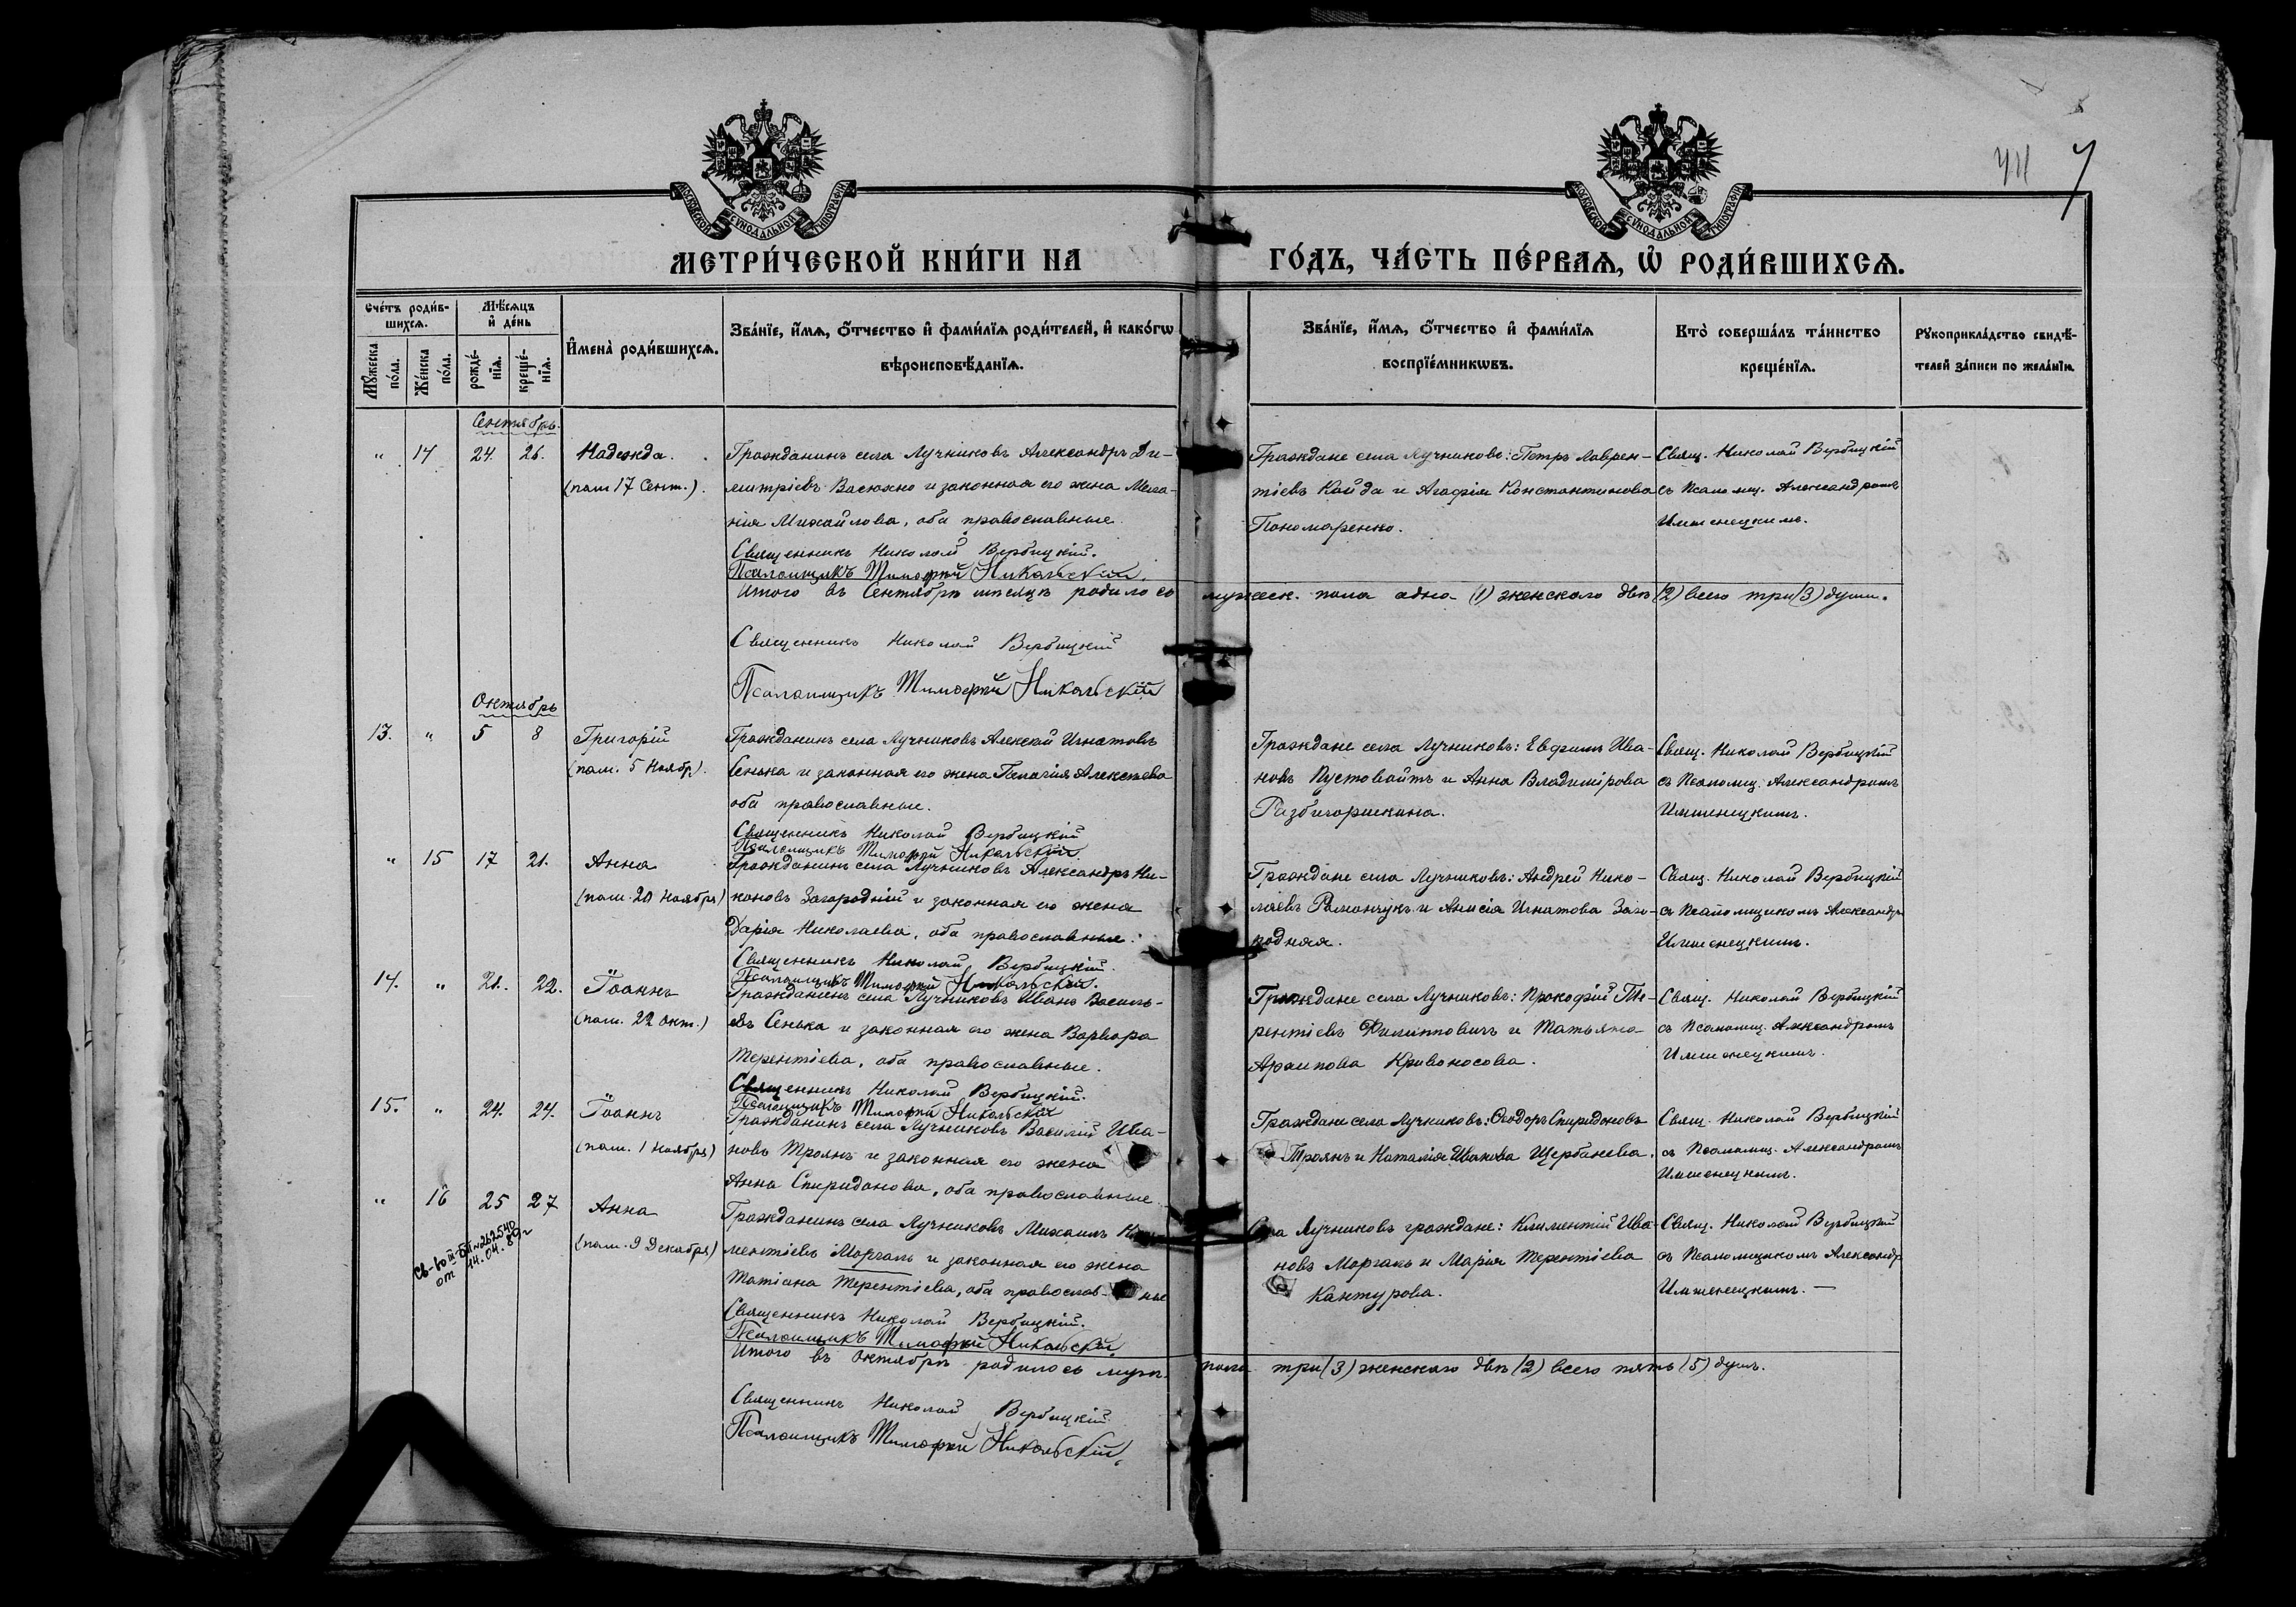 МОСКОВСКОЙ СѴНОДАЛЬНОЙ ТИПОГРАФІИ
МОСКОВСКОЙ СѴНОДАЛЬНОЙ ТИПОГРАФІИ
7
МЕТРИ́ЧЕСКОЙ КНИ́ГИ НА ГО́ДЪ, ЧА́СТЬ ПЕ́РВАѦ, Ѡ҆ РОДИ́ВШИХСѦ.
Сче́тъ роди́в-
шихсѧ.
Мꙋ́жеска
по́ла.
Же́нска
по́ла.
Мѣ́сѧцъ
и҆ де́нь
рожде́-
нїѧ.
креще́-
нїѧ.
И҆мена̀ роди́вшихсѧ.
Зва́нїе, и҆́мѧ, ѻ҆́тчество и҆ фами́лїѧ роди́телей, и҆ како́гѡ
вѣроисповѣ́данїѧ.
Зва́нїе, и҆́мѧ, ѻ҆́тчество и҆ фами́лїѧ
воспрїе́мникѡвъ.
Кто̀ соверша́лъ та́инство
креще́нїѧ.
Рꙋкоприкла́дство свидѣ́-
телей за́писи по жела́нїю.
Сентябрь.
" 14 24. 26. Надежда.
(пам 17 Сент.).
Гражданинъ села Лучниковъ Александръ Ди-
митріевъ Васюхно и законная его жена Мела-
нія Михайлова, оба православные.
Священникъ Николай Вербицкій.
Псаломщикъ Тимофей Никольскій.
Граждане села Лучниковъ: Петръ Лаврен-
тіевъ Кайда и Агафія Константинова
Пономаренко.
Свящ. Николай Вербицкій
съ Псаломщ. Александромъ
Имшенецкимъ.
Итого въ Сентябрѣ мѣсяцѣ родилось мужеск. пола одно (1) женскаго двѣ (2) всего три (3) души.
Священникъ Николай Вербицкій
Псаломщикъ Тимофей Никольскій
Октябрь
13. " 5 8 Григорій
(пам. 5 Ноябр.).
Гражданинъ села Лучниковъ Алексѣй Игнатовъ
Сенька и законная его жена Пелагія Алексѣева
оба православные.
Священникъ Николай Вербицкій
Псаломщикъ Тимофей Никольскій.
Граждане села Лучниковъ: Евфимъ Ива-
новъ Пустовойтъ и Анна Владимірова
Свящ. Николай Вербицкій
съ Псаломщ. Александромъ
Имшенецкимъ.
" 15 17 21. Анна
(пам. 20 Ноября)
Гражданинъ села Лучниковъ Александръ Ни-
коновъ Загородній и законная его жена
Дарія Николаева, оба православные.
Священникъ Николай Вербицкій.
Псаломщикъ Тимофей Никольскій.
Граждане села Лучниковъ: Андрей Нико-
лаевъ Романчукъ и Анисія Игнатова Заго-
родняя.
Свящ. Николай Вербицкій
съ Псаломщикомъ Александр
Имшенецкимъ.
14. " 21. 22. Іоаннъ
(пам. 22 Окт.)
Гражданинъ села Лучниковъ Иванъ Василь-
евъ Сенька и законная его жена Варвара
Терентіева, оба православные.
Священникъ Николай Вербицкій.
Псаломщикъ Тимофей Никольскій
Граждане села Лучниковъ: Прокофій Те-
рентіевъ Филипповичъ и Татьяна
Архипова Кривоносова.
Свящ. Николай Вербицкій
съ Псаломщ. Александромъ
Имшенецкимъ.
15. " 24. 24. Іоаннъ
(пам. 1 Ноября)
Гражданинъ села Лучниковъ Василій Ива-
новъ Троянъ и законная его жена
Анна Спиридонова, оба православные
Граждане села Лучниковъ: Ѳеодоръ Спиридоновъ
Троянъ и Наталія Иванова Щербанева.
Свящ. Николай Вербицкій
съ Псаломщ. Александромъ
Имшенецкимъ.
" 16 25 27 Анна
(пам. 9 Декабря)
Св-во II-БП №262540
от 14.04.89г
Гражданинъ села Лучниковъ Михаилъ
ментіевъ Моргачъ и законная его жена
Татіана Терентіева, оба православ-ные
Священникъ Николай Вербицкій.
Псаломщикъ Тимофей Никольскій.
Села Лучниковъ граждане: Климентій Ива-
новъ Моргачъ и Марія Терентіева
Кантурова.
Свящ. Николай Вербицкій
съ Псаломщикомъ Александр
Имшенецкимъ. —
Итого въ Октябрѣ родилось муж. пола три (3) женскаго двѣ (2) всего пять (5) душъ.
Священникъ Николай Вербицкій
Псаломщикъ Тимофей Никольскій.